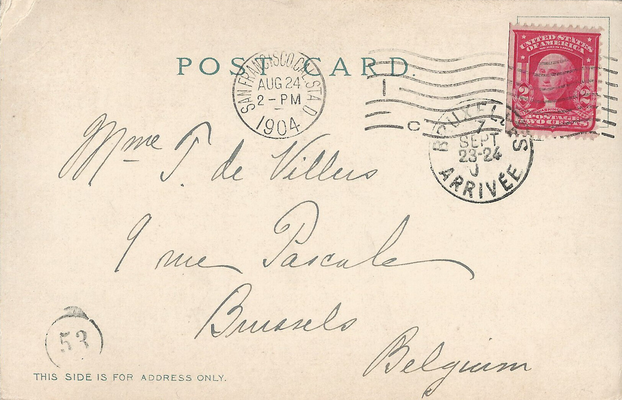 POST CARD.
SAN FRANCISCO, CAL. STA. D
AUG 24
2-PM
1904
UNITED STATES
OF AMERICA
2 2
POSTAGE
TWO CENTS
C
BRUXELLES
7
SEPT
23-24
ARRIVÉE
Mme T. de Villers
9 rue Pascale
Brussels
Belgium
53
THIS SIDE IS FOR ADDRESS ONLY.